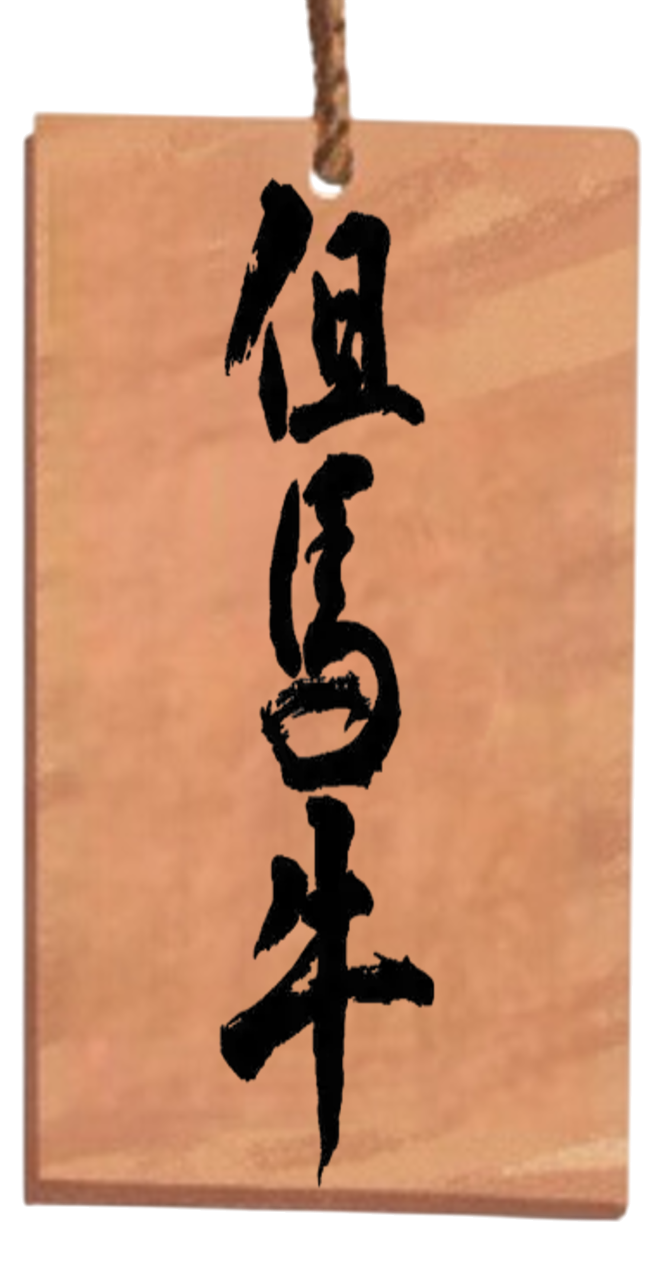 但馬牛